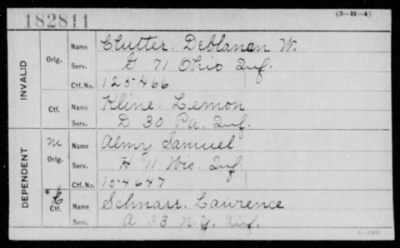 182811
(3-M-4)
INVALID
Orig. Name Clutter. Deblanen W.
Serv. G 71 Ohio Inf.
Ctf. No. 125466
Ctf. Name Kline. Lemon
Serv. D 30 Pa. Inf.
DEPENDENT
Orig. Name Almy Samuel
Serv. H 11 Wis. Inf
Ctf. No. 154647
Ctf. Name Schnarr. Lawrence
Serv. A 33 N.Y. Inf.